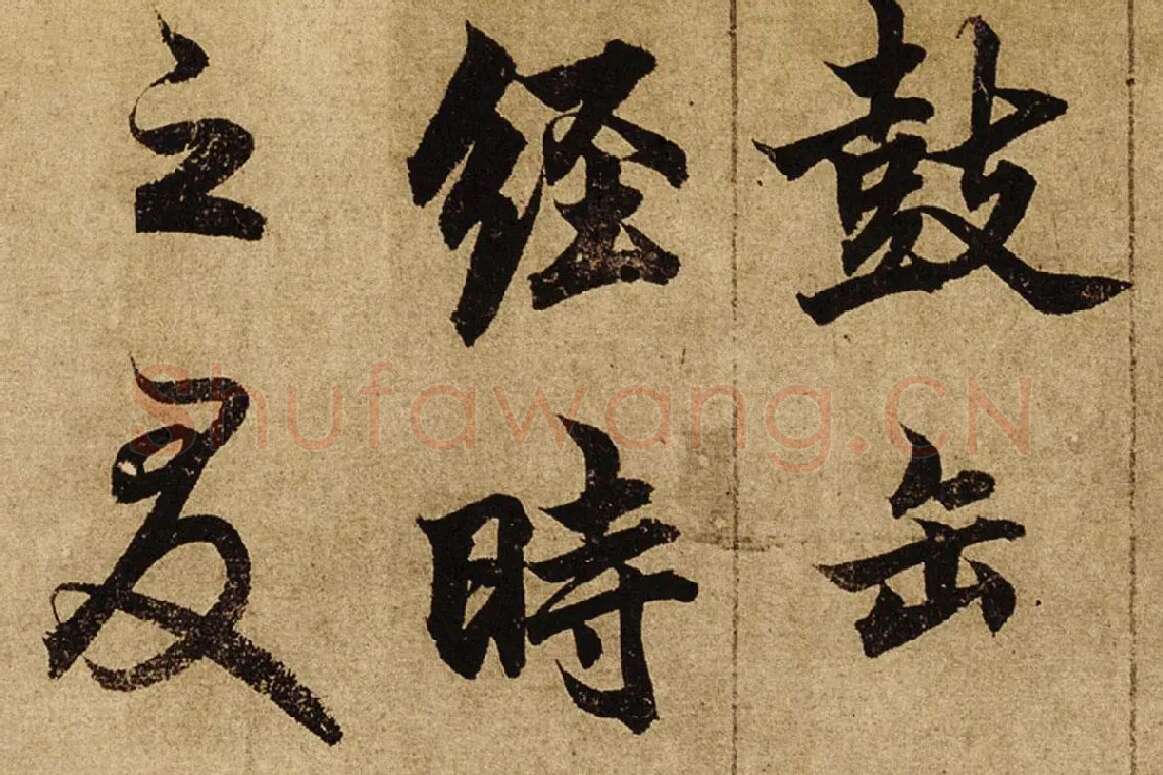 鼓缶
經時
之夏
Shufawang.CN